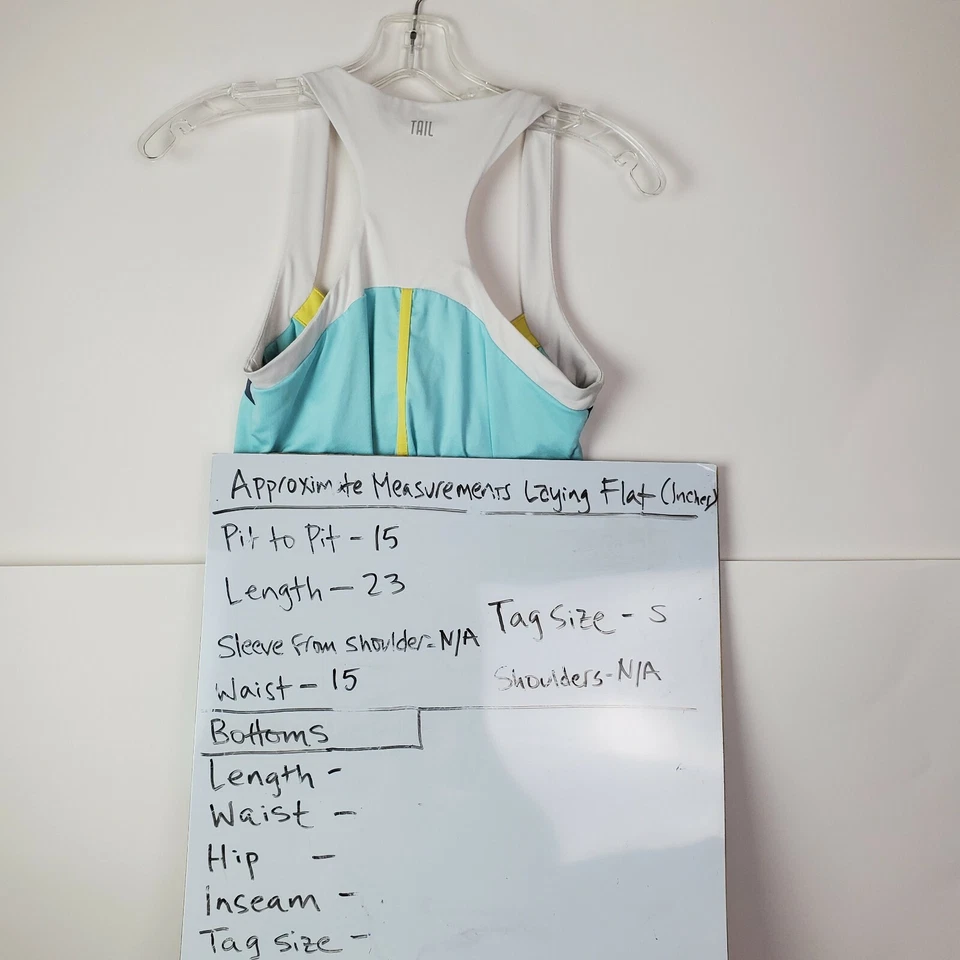 TAIL
Approximate Measurements Laying Flat (Inches)
Pit to Pit - 15
Length - 23
Sleeve from shoulder - N/A
Tag Size - S
Waist - 15
Shoulders - N/A
Bottoms
Length -
Waist -
Hip -
inseam -
Tag size -